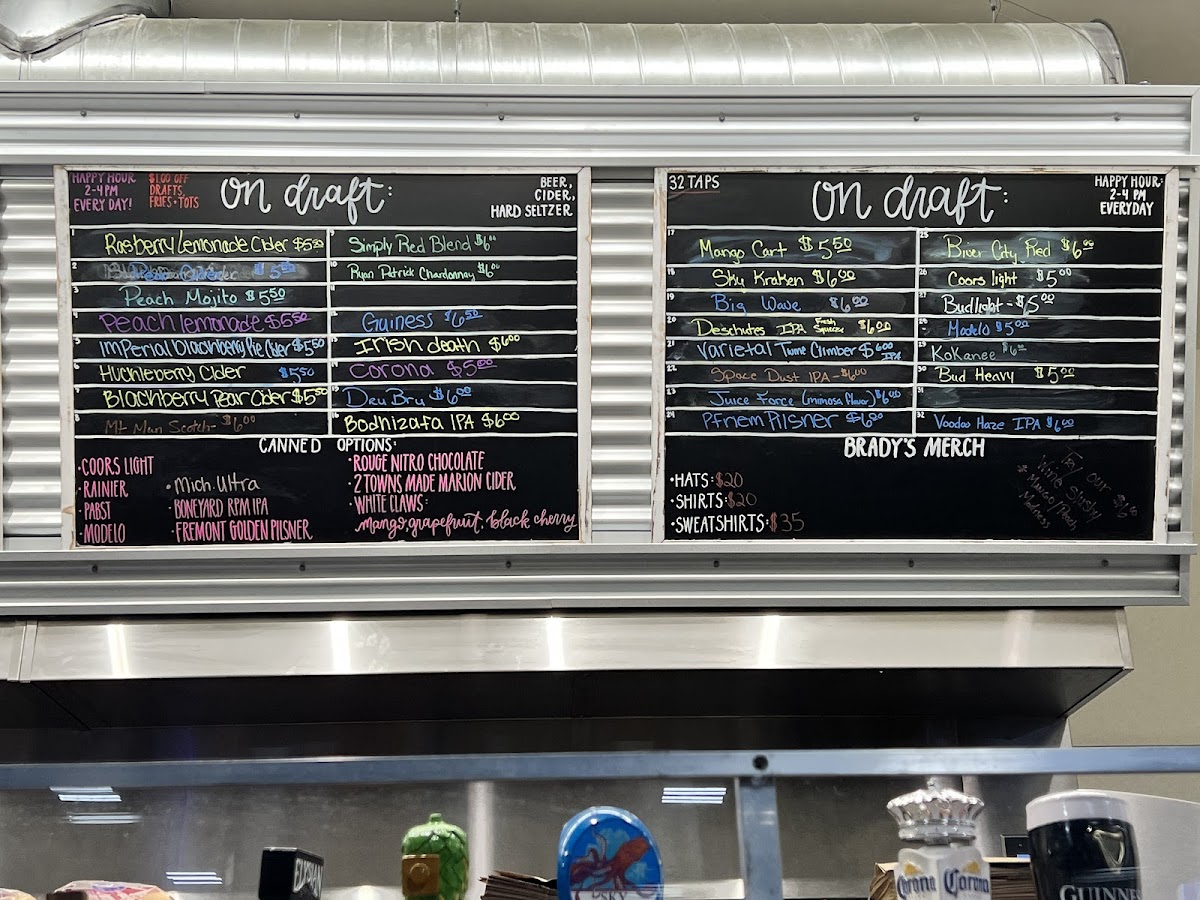 HAPPY HOUR
2-4 PM
EVERY DAY!
$1.00 OFF
DRAFTS,
FRIES + TOTS
on draft:
BEER,
CIDER,
HARD SELTZER
1 Rasberry Lemonade Cider $5.50
2 $5.50
3 Peach Mojito $5.50
4 Peach lemonade $5.50
5 Imperial blackberry Pie Cider $5.50
6 Huckleberry Cider $5.50
7 Blackberry Pear Cider $5.50
8 Mt Man Scotch - $6.00
9 Simply Red Blend $6.00
10 Ryan Patrick Chardonnay $6.00
Guiness $6.50
Irish death $6.00
Corona $5.00
15 Dru Bru $6.00
16 Bodhizafa IPA $6.00
CANNED OPTIONS:
·COORS LIGHT
·RAINIER
·PABST
·MODELO
·Mich. Ultra
·BONEYARD RPM IPA
·FREMONT GOLDEN PILSNER
·ROUGE NITRO CHOCOLATE
·2 TOWNS MADE MARION CIDER
·WHITE CLAWS:
mango, grapefruit, black cherry
32 TAPS
on draft:
HAPPY HOUR:
2-4 PM
EVERYDAY
17 Mango Cart $5.50
18 Sky Kraken $6.00
19 Big Wave $6.00
20 Deschutes IPA Fresh Squeeze $6.00
21 Varietal Twine Climber $6.00 IPA
22 Space Dust IPA - $6.00
23 Juice Force (mimosa flavor) $6.00
24 Pfriem Pilsner $6.00
25 River City Red $6.00
26 Coors light $5.00
27 Budlight - $5.00
28 Modelo $5.00
29 Kokanee $6.00
30 Bud Heavy $5.00
31
32 Voodoo Haze IPA $6.00
BRADY'S MERCH
·HATS: $20
·SHIRTS: $20
·SWEATSHIRTS: $35
Try our $6.50
Wine Slushy
*Mango/Peach
Madness
ELYSIAN
SKY
Corona Corona
GUINNESS